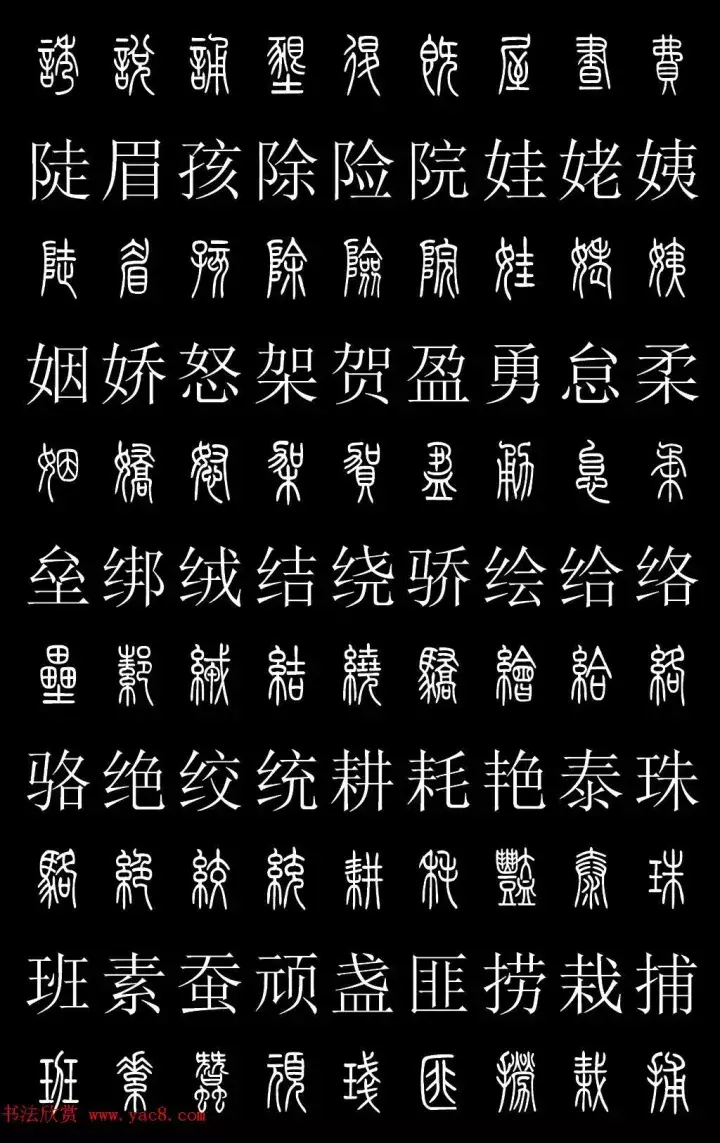 誇說誦墾退既屋晝費
陡眉孩除险院娃姥姨
陡眉孩除險院娃姥姨
姻娇怒架贺盈勇怠柔
姻嬌怒架賀盈勈怠柔
垒绑绒结绕骄绘给络
壘綁絨結繞驕繪給絡
骆绝绞统耕耗艳泰珠
駱絕絞統耕耗豔泰珠
班素蚕顽盏匪捞栽捕
班素蠶頑琖匪撈栽捕
书法欣赏 www.yac8.com